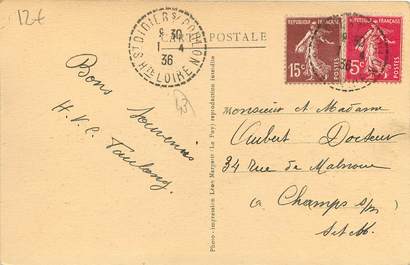 12€
ST DIDIER S/ DOULON
8 30
1 - 4
36
HTE LOIRE
CARTE POSTALE
REPUBLIQUE FRANÇAISE
15c
POSTES
REPUBLIQUE FRANÇAISE
5c
POSTES
Bons Souvenirs
H.V.C. Toulong.
Photo-impression Léon Margerit (Le Puy) reproduction interdite
Monsieur et Madame
Aubert Docteur
34 Rue de Malnoue
à Champs s/m
S et M.